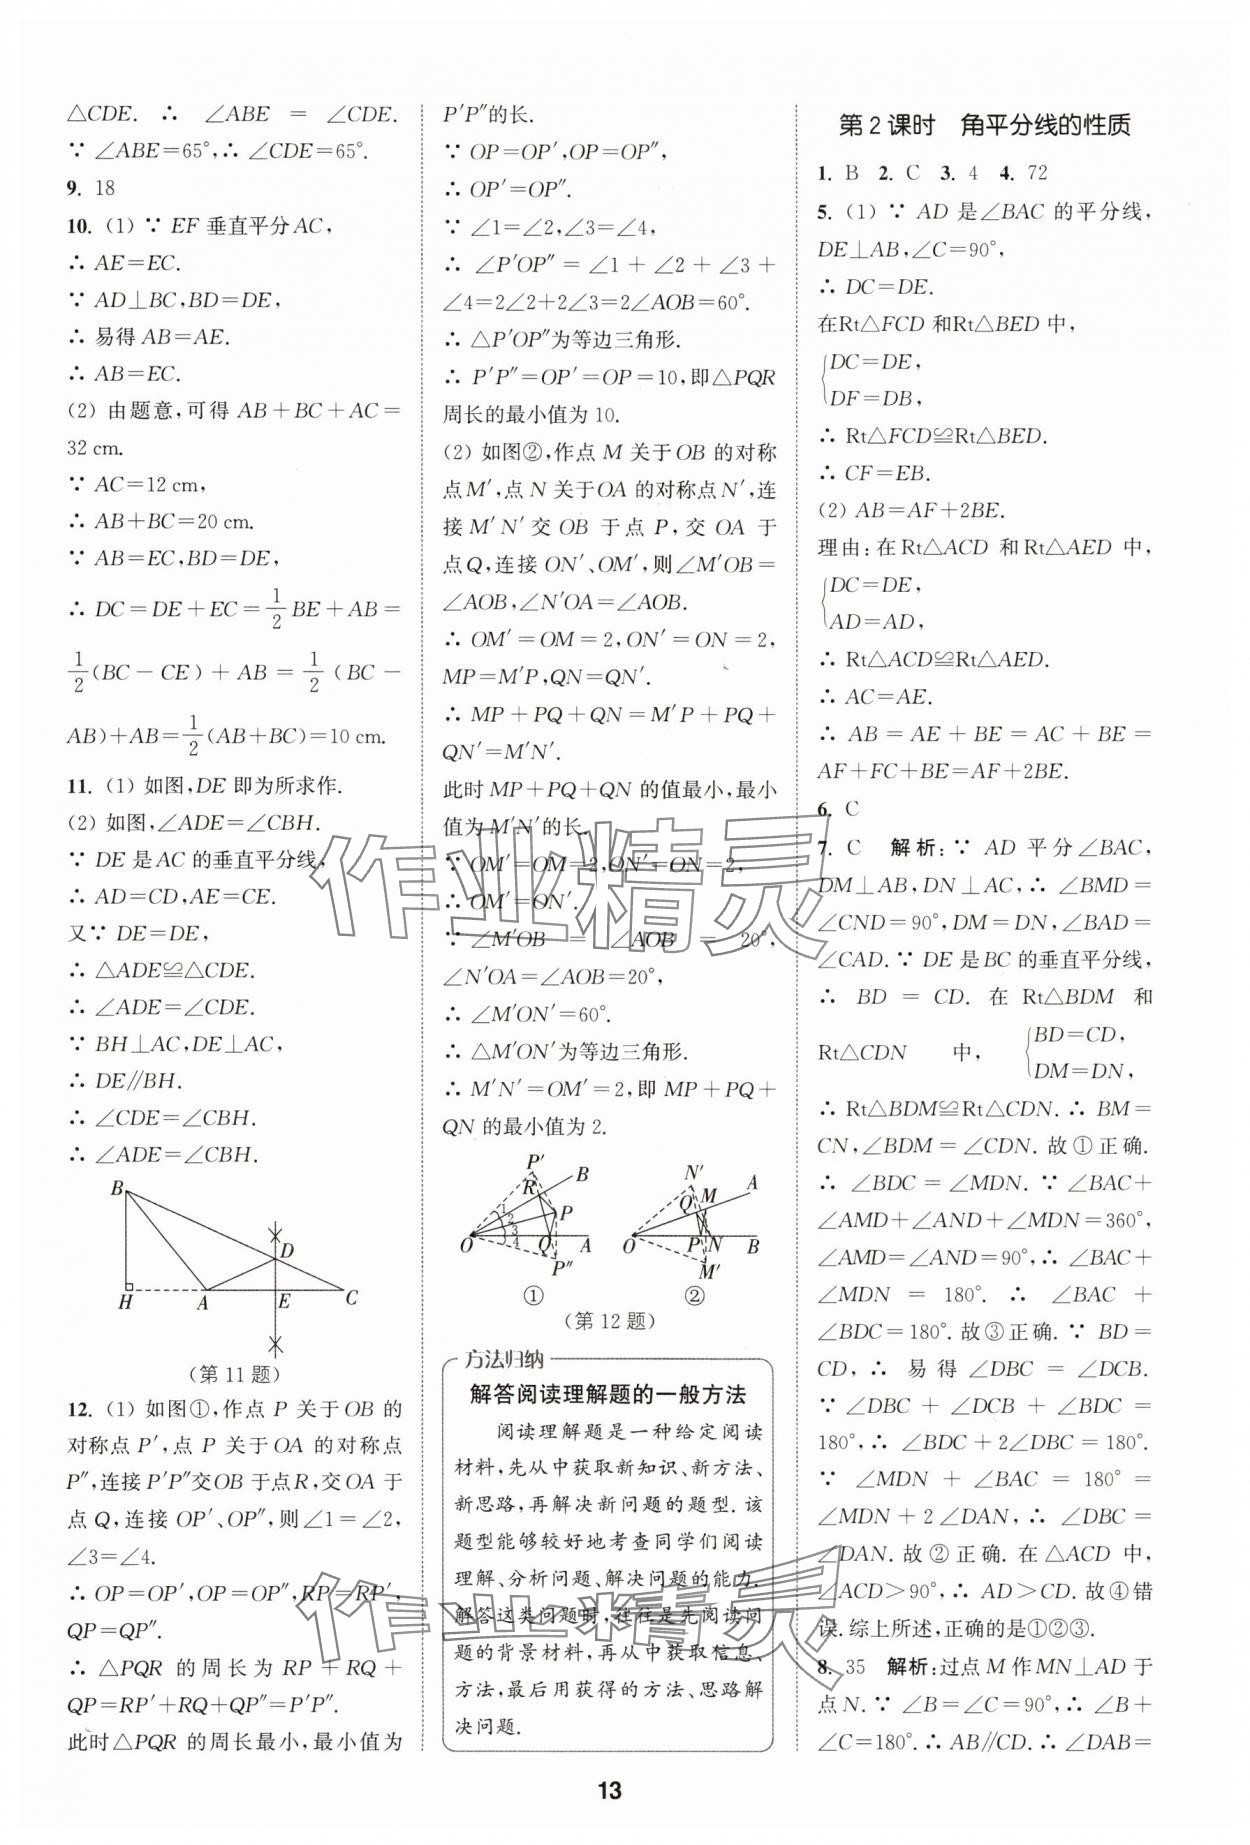 △CDE. ∴ ∠ABE = ∠CDE.
∵ ∠ABE=65°,∴ ∠CDE=65°.
9. 18
10. (1) ∵ EF 垂直平分 AC,
∴ AE=EC.
∵ AD⊥BC,BD=DE,
∴ 易得 AB=AE.
∴ AB=EC.
(2) 由题意,可得 AB+BC+AC=
32 cm.
∵ AC=12 cm,
∴ AB+BC=20 cm.
∵ AB=EC,BD=DE,
∴ DC=DE+EC=1/2 BE+AB=
1/2(BC-CE)+AB=1/2(BC-
AB)+AB=1/2(AB+BC)=10 cm.
11. (1) 如图,DE 即为所求作.
(2) 如图,∠ADE=∠CBH.
∵ DE 是 AC 的垂直平分线,
∴ AD=CD,AE=CE.
又∵ DE=DE,
∴ △ADE≌△CDE.
∴ ∠ADE=∠CDE.
∵ BH⊥AC,DE⊥AC,
∴ DE∥BH.
∴ ∠CDE=∠CBH.
∴ ∠ADE=∠CBH.
B
D
H A E C
(第11题)
12. (1) 如图①,作点 P 关于 OB 的
对称点 P′,点 P 关于 OA 的对称点
P″,连接 P′P″交OB 于点R,交 OA 于
点 Q,连接 OP′、OP″,则∠1=∠2,
∠3=∠4.
∴ OP=OP′,OP=OP″,RP=RP′,
QP=QP″.
∴ △PQR 的周长为 RP+RQ+
QP=RP′+RQ+QP″=P′P″.
此时△PQR 的周长最小,最小值为
P′P″的长.
∵ OP=OP′,OP=OP″,
∴ OP′=OP″.
∵ ∠1=∠2,∠3=∠4,
∴ ∠P′OP″=∠1+∠2+∠3+
∠4=2∠2+2∠3=2∠AOB=60°.
∴ △P′OP″为等边三角形.
∴ P′P″=OP′=OP=10,即△PQR
周长的最小值为 10.
(2) 如图②,作点 M 关于 OB 的对称
点M′,点 N 关于OA 的对称点N′,连
接 M′N′ 交 OB 于点 P,交 OA 于
点Q,连接 ON′、OM′,则∠M′OB=
∠AOB,∠N′OA=∠AOB.
∴ OM′=OM=2,ON′=ON=2,
MP=M′P,QN=QN′.
∴ MP+PQ+QN=M′P+PQ+
QN′=M′N′.
此时 MP+PQ+QN 的值最小,最小
值为 M′N′的长.
∵ OM′=OM=2,ON′=ON=2,
∴ OM′=ON′.
∵ ∠M′OB = ∠AOB = 20°,
∠N′OA=∠AOB=20°,
∴ ∠M′ON′=60°.
∴ △M′ON′为等边三角形.
∴ M′N′=OM′=2,即 MP+PQ+
QN 的最小值为 2.
P′ B R 1 2 3 4 P O Q A P″
N′ M A Q O P N B M′
① ②
(第12题)
方法归纳
解答阅读理解题的一般方法
阅读理解题是一种给定阅读
材料,先从中获取新知识、新方法、
新思路,再解决新问题的题型. 该
题型能够较好地考查同学们阅读
理解、分析问题、解决问题的能力.
解答这类问题时,往往是先阅读问
题的背景材料,再从中获取信息、
方法,最后用获得的方法、思路解
决问题.
第 2 课时 角平分线的性质
1. B 2. C 3. 4 4. 72
5. (1) ∵ AD 是∠BAC 的平分线,
DE⊥AB,∠C=90°,
∴ DC=DE.
在Rt△FCD 和Rt△BED 中,
{DC=DE,
DF=DB,
∴ Rt△FCD≌Rt△BED.
∴ CF=EB.
(2) AB=AF+2BE.
理由:在Rt△ACD 和Rt△AED 中,
{DC=DE,
AD=AD,
∴ Rt△ACD≌Rt△AED.
∴ AC=AE.
∴ AB=AE+BE=AC+BE=
AF+FC+BE=AF+2BE.
6. C
7. C 解析:∵ AD 平分∠BAC,
DM⊥AB,DN⊥AC,∴ ∠BMD=
∠CND=90°,DM=DN,∠BAD=
∠CAD.∵ DE 是 BC 的垂直平分线,
∴ BD = CD. 在 Rt△BDM 和
Rt△CDN 中, {BD=CD,
DM=DN,
∴ Rt△BDM≌Rt△CDN.∴ BM=
CN,∠BDM=∠CDN. 故①正确.
∴ ∠BDC=∠MDN. ∵ ∠BAC+
∠AMD+∠AND+∠MDN=360°,
∠AMD=∠AND=90°,∴ ∠BAC+
∠MDN = 180°. ∴ ∠BAC +
∠BDC=180°. 故③正确.∵ BD=
CD,∴ 易得∠DBC=∠DCB.
∵ ∠DBC + ∠DCB + ∠BDC =
180°,∴ ∠BDC+2∠DBC=180°.
∵ ∠MDN + ∠BAC = 180° =
∠MDN+2∠DAN,∴ ∠DBC=
∠DAN. 故②正确. 在△ACD 中,
∠ACD>90°,∴ AD>CD. 故④错
误.综上所述,正确的是①②③.
8. 35 解析:过点 M 作MN⊥AD 于
点 N.∵ ∠B=∠C=90°,∴ ∠B+
∠C=180°.∴ AB∥CD.∴ ∠DAB=
13
作业精灵
作业精灵